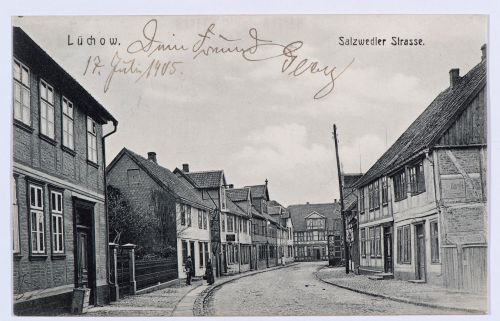 Lüchow.
Salzwedler Strasse.
Dein Freund Georg
17. Juli 1905.